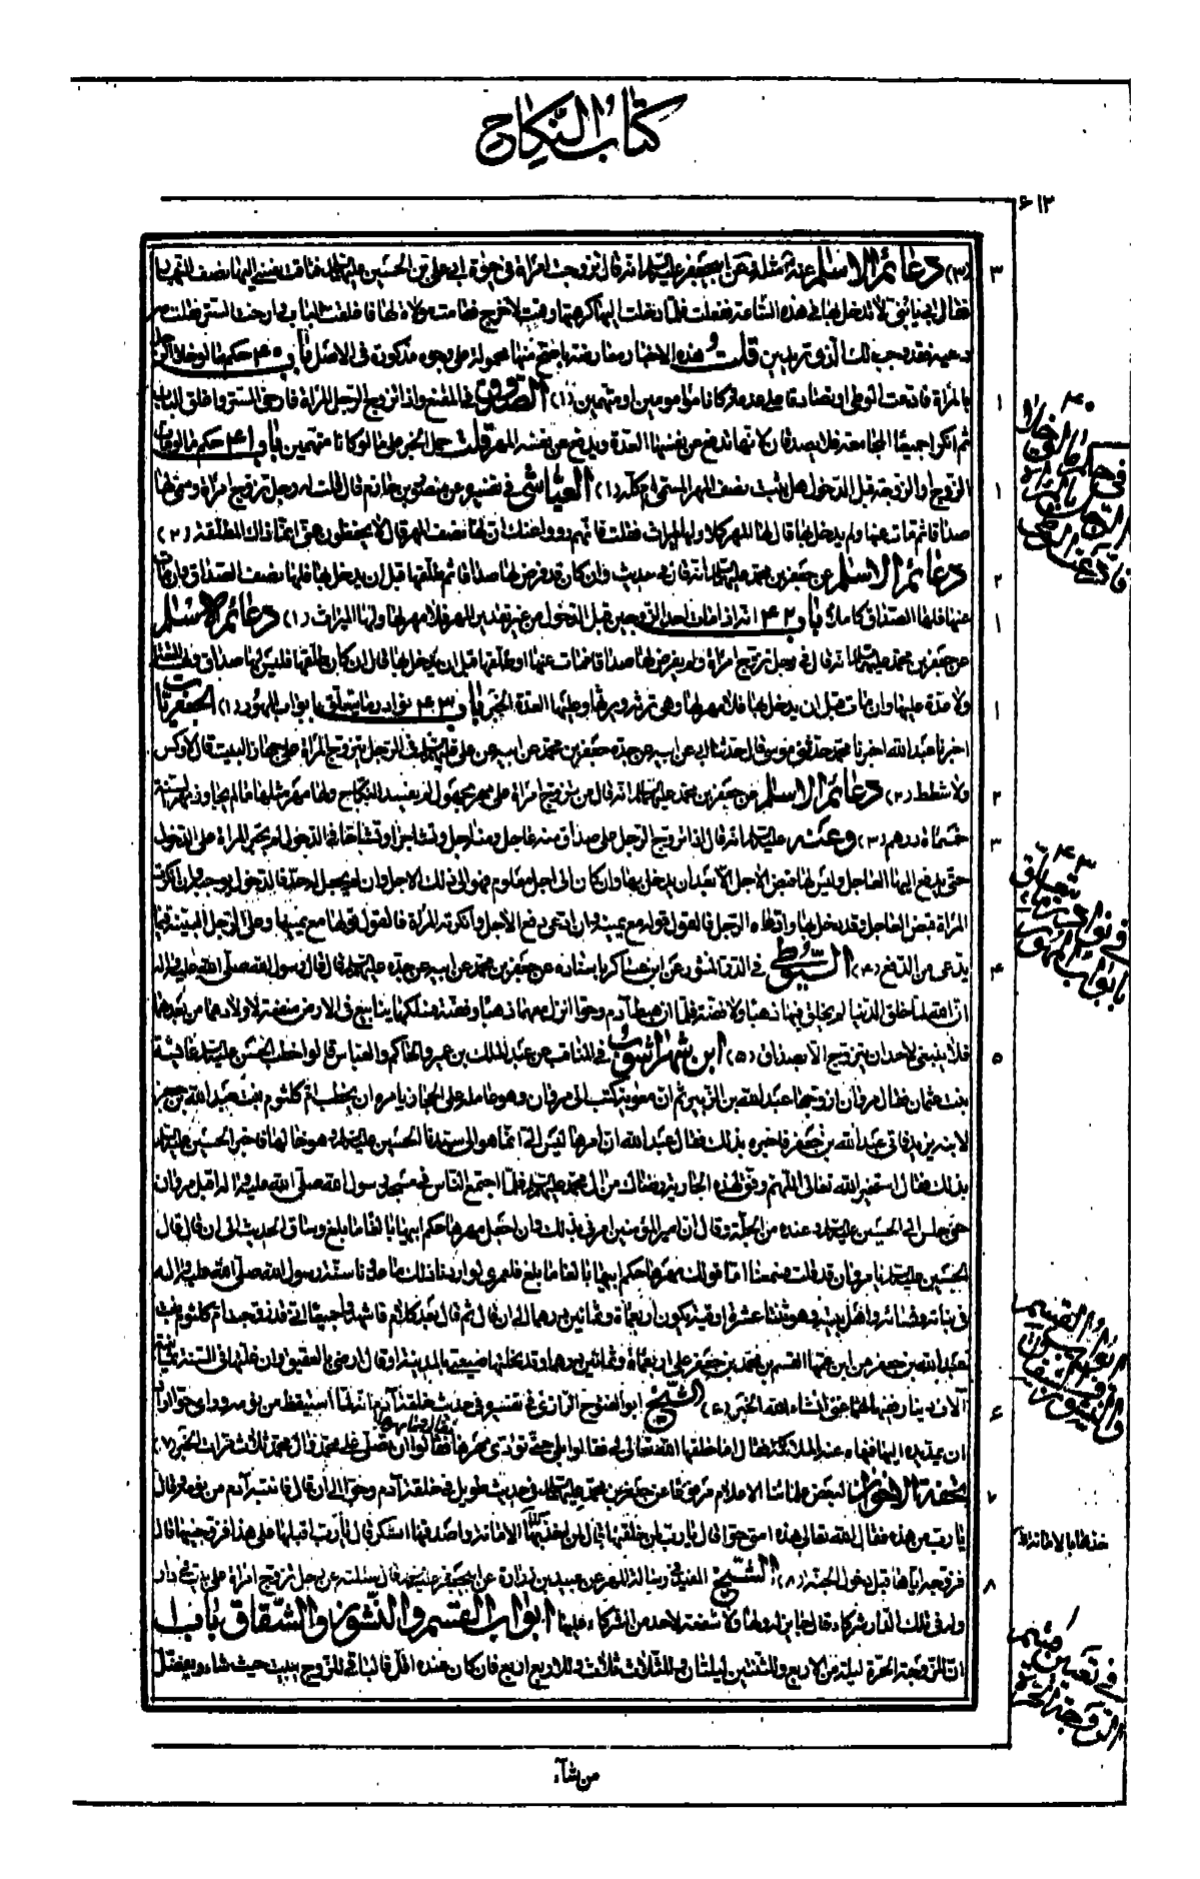 كتاب النكاح
٦١٢
(٣) دعائم الاسلام عن ابي جعفر عليه السلام انه قال تزوجت امراة في حيوة ابي علي بن الحسين عليهما السلام
فقال لي يا بني لا تدخل بها في هذه الساعة ففعلت فلما دخلت اليها كرهتها وقمت لاخرج فقامت مولاة لها فاغلقت الباب وارخت الستر فقلت
قلت وهذه الاخبار محمولة على وجوه مذكورة في الاصل باب ٤٠ حكم ما لو خلا الرجل
بالمراة فادعت الوطى او تصادقا على عدمه وكانا مامونين او متهمين (١) الصدوق في المقنع واذا تزوج الرجل المراة فارخى الستر واغلق الباب
ثم انكرا جميعا المجامعة فلا يصدقان لانها تدفع عن نفسها العدة ويدفع عن نفسه المهر قلت حمل الخبر على ما لو كانا متهمين باب ٤١ حكم ما لو مات
الزوج او الزوجة قبل الدخول هل يثبت نصف المهر المسمى ام كله (١) العياشي في تفسيره عن منصور بن حازم قال قلت له رجل تزوج امراة وسمى لها
صداقا ثم مات عنها ولم يدخل بها قال لها المهر كملا ولها الميراث فقلت فانهم رووا عنك ان لها نصف المهر قال لا يحفظون عني انما ذاك المطلقة (٢)
دعائم الاسلام عن جعفر بن محمد عليهما السلام انه قال في حديث وان كان قد فرض لها صداقا ثم طلقها قبل ان يدخل بها فلها نصف الصداق وان مات
عنها فلها الصداق كاملا باب ٤٢ انه اذا مات احد الزوجين قبل الدخول من غير تقدير المهر فلا مهر لها ولها الميراث (١) دعائم الاسلام
عن جعفر بن محمد عليهما السلام انه قال في رجل تزوج امراة ولم يفرض لها صداقا فمات عنها او طلقها قبل ان يدخل بها قال ان كان طلقها فليس لها صداق ولها المتعة
ولا عدة عليها وان مات قبل ان يدخل بها فلا مهر لها وهي ترثه ويرثها وعليها العدة الخبر باب ٤٣ نوادر ما يتعلق بابواب المهور (١) الجعفريات
اخبرنا عبد الله اخبرنا محمد حدثني موسى قال حدثنا ابي عن ابيه عن جده جعفر بن محمد عن ابيه عن علي عليهم السلام في الرجل يتزوج المراة على جهاز البيت قال لا وكس
ولا شطط (٢) دعائم الاسلام عن جعفر بن محمد عليهما السلام انه قال من تزوج امراة على مهر مجهول لم يفسد النكاح ولها مهر مثلها ما لم يجاوز مهر السنة
خمسمائة درهم (٣) وعنه عليه السلام انه قال اذا تزوج الرجل على صداق منه عاجل ومنه اجل وتشاجرا وتشاحا في الدخول لم تجبر المراة على الدخول
حتى يدفع اليها العاجل وليس لها قبض الاجل الا بعد ان يدخل بها وان كان الى اجل معلوم فهو الى ذلك الاجل وان لم يجعل له حد فالدخول يوجبه وان انكرت
المراة قبض العاجل وقد دخل بها وادعاه الرجل فالقول قوله مع يمينه وان ادعى دفع الاجل وانكرته المراة فالقول قولها مع يمينها وعلى الرجل البينة فيما
يدعي من الدفع (٤) السيوطي في الدر المنثور عن ابن عساكر باسناده عن جعفر بن محمد عن ابيه عن جده عليهم السلام قال قال رسول الله صلى الله عليه واله
ان الله لما خلق الدنيا لم يخلق فيها ذهبا ولا فضة فلما ان هبط آدم وحوا انزل معهما ذهبا وفضة فسلكهما ينابيع في الارض منفعة لاولادهما من بعدهما
فلا ينبغي لاحد ان يتزوج الا بصداق (٥) ابن شهر اشوب في المناقب عن عبد الملك بن عمير والحاكم والعباس قالوا خطب الحسن عليه السلام عائشة
بنت عثمان فقال مروان ازوجها عبد الله بن الزبير ثم ان معوية كتب الى مروان وهو عامله على الحجاز يامره ان يخطب ام كلثوم بنت عبد الله بن جعفر
لابنه يزيد فاتى عبد الله بن جعفر فاخبره بذلك فقال عبد الله ان امرها ليس الي انما هو الى سيدنا الحسين عليه السلام وهو خالها فاخبر الحسين عليه السلام
بذلك فقال استخير الله تعالى اللهم وفق لهذه الجارية رضاك من آل محمد عليهم السلام فلما اجتمع الناس في مسجد رسول الله صلى الله عليه واله اقبل مروان
حتى جلس الى الحسين عليه السلام وعنده من الجلة وقال ان امير المؤمنين امرني بذلك وان اجعل مهرها حكم ابيها بالغا ما بلغ وساق الحديث الى ان قال قال
الحسين عليه السلام يا مروان قد قلت فسمعنا اما قولك مهرها حكم ابيها بالغا ما بلغ فلعمري لو اردنا ذلك ما عدونا سنة رسول الله صلى الله عليه واله
في بناته ونسائه واهل بيته وهو ثنتا عشرة اوقية يكون اربعمائة وثمانين درهما الى ان قال ثم قال بعد كلام فاشهدوا جميعا اني قد زوجت ام كلثوم بنت
عبد الله بن جعفر من ابن عمها القسم بن محمد بن جعفر على اربعمائة وثمانين درهما وقد نحلتها ضيعتي بالمدينة او قال ارضي بالعقيق وان غلتها في السنة ثمانية
آلاف دينار ففيها لهما غنى انشاء الله الخبر (٦) الشيخ ابو الفتوح الرازي في تفسيره في حديث خلقة آدم انه لما استيقظ من نومه وراى حوا اراد
ان يمد يده اليها فنهاه عنه الملائكة فقال اما خلقها الله تعالى لي فقالوا بلى حتى تؤدي مهرها فقال وما مهرها فقالوا ان تصلى على محمد وال محمد ثلاث مرات الخبر (٧)
تحفة الاخوان لبعض علمائنا الاعلام مرفوعا عن جعفر بن محمد عليهما السلام في حديث طويل في خلقة آدم وحوا الى ان قال فانتبه آدم من نومه وقال
يا رب من هذه فقال الله تعالى هذه امتي حوا قال يا رب لمن خلقتها قال لمن اخذها بالامانة واصدقها الشكر قال يا رب اقبلها على هذا فزوجنيها قال
فزوجه اياها قبل دخول الجنة (٨) الشيخ المفيد في رسالة المهر عن عبيد بن زرارة عن ابي جعفر عليه السلام قال سئلته عن رجل تزوج امراة على بيت في دار
وله في تلك الدار شركاء قال جايز له ولها ولا شفعة لاحد من الشركاء عليها ابواب القسم والنشوز والشقاق باب ١
ان للزوجة الحرة ليلة من الاربع وللثنتين ليلتان وللثلاث ثلاث وللاربع اربع فان كان عنده اقل فالباقي للزوج يبيت حيث شاء ويفضل
من شآء
٣
١
١
٢
١
١
٢
٣
٤
٥
٦
٧
٨
٤٠
٤٣
في نوادر ما يتعلق بابواب المهور
ابواب القسم والنشوز والشقاق